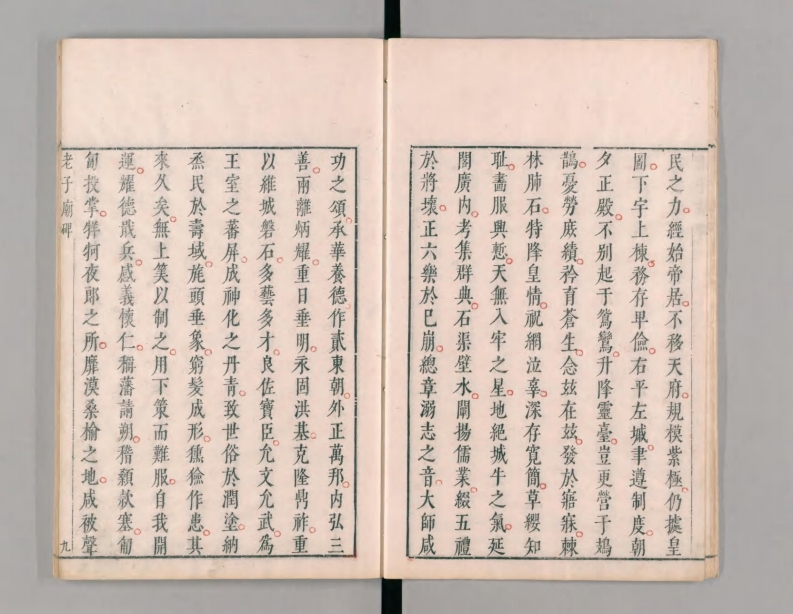 民之力經始帝居不移天府規模紫極仍據皇
圖下宇上棟務存卑儉右平左墄聿遵制度朝
夕正殿不别起于鴛鸞升降靈臺豈更營于鳷
鵲憂勞庶績矜育蒼生念兹在兹發於寤寐棘
林肺石特降皇情祝網泣辜深存寛簡草纓知
耻畵服興慙天無入牢之星地絶城牛之氣延
閣廣内考集群典石渠壁水闡揚儒業綴五禮
於將壞正六樂於已崩總章溺志之音大師咸
功之頌承華養德作貳東朝外正萬邦内弘三
善兩離炳耀重日垂明永固洪基克隆鼎祚重
以維城磐石多藝多才良佐寶臣允文允武爲
王室之蕃屏成神化之丹青致世俗於潤塗納
烝民於壽域旄頭垂象窮髮成形獯獫作患其
來久矣無上筭以制之用下策而難服自我開
運耀德戢兵感義懷仁稱藩請朔稽顙欵塞匍
匐投掌牂牁夜郎之所靡漠桑榆之地咸被聲
老子廟碑
九